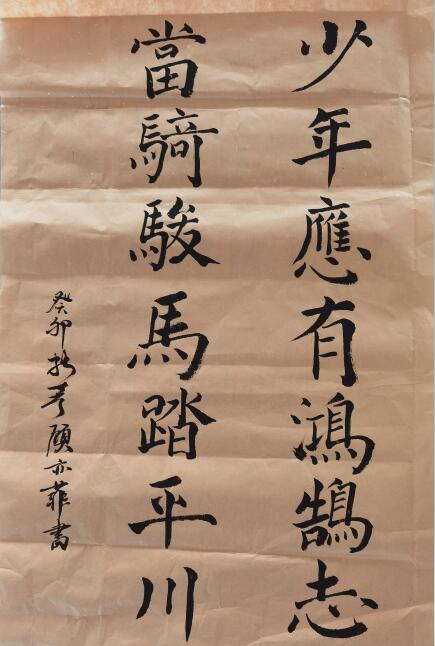 少年應有鴻鵠志
當騎駿馬踏平川
癸卯於彦顾亦菲書